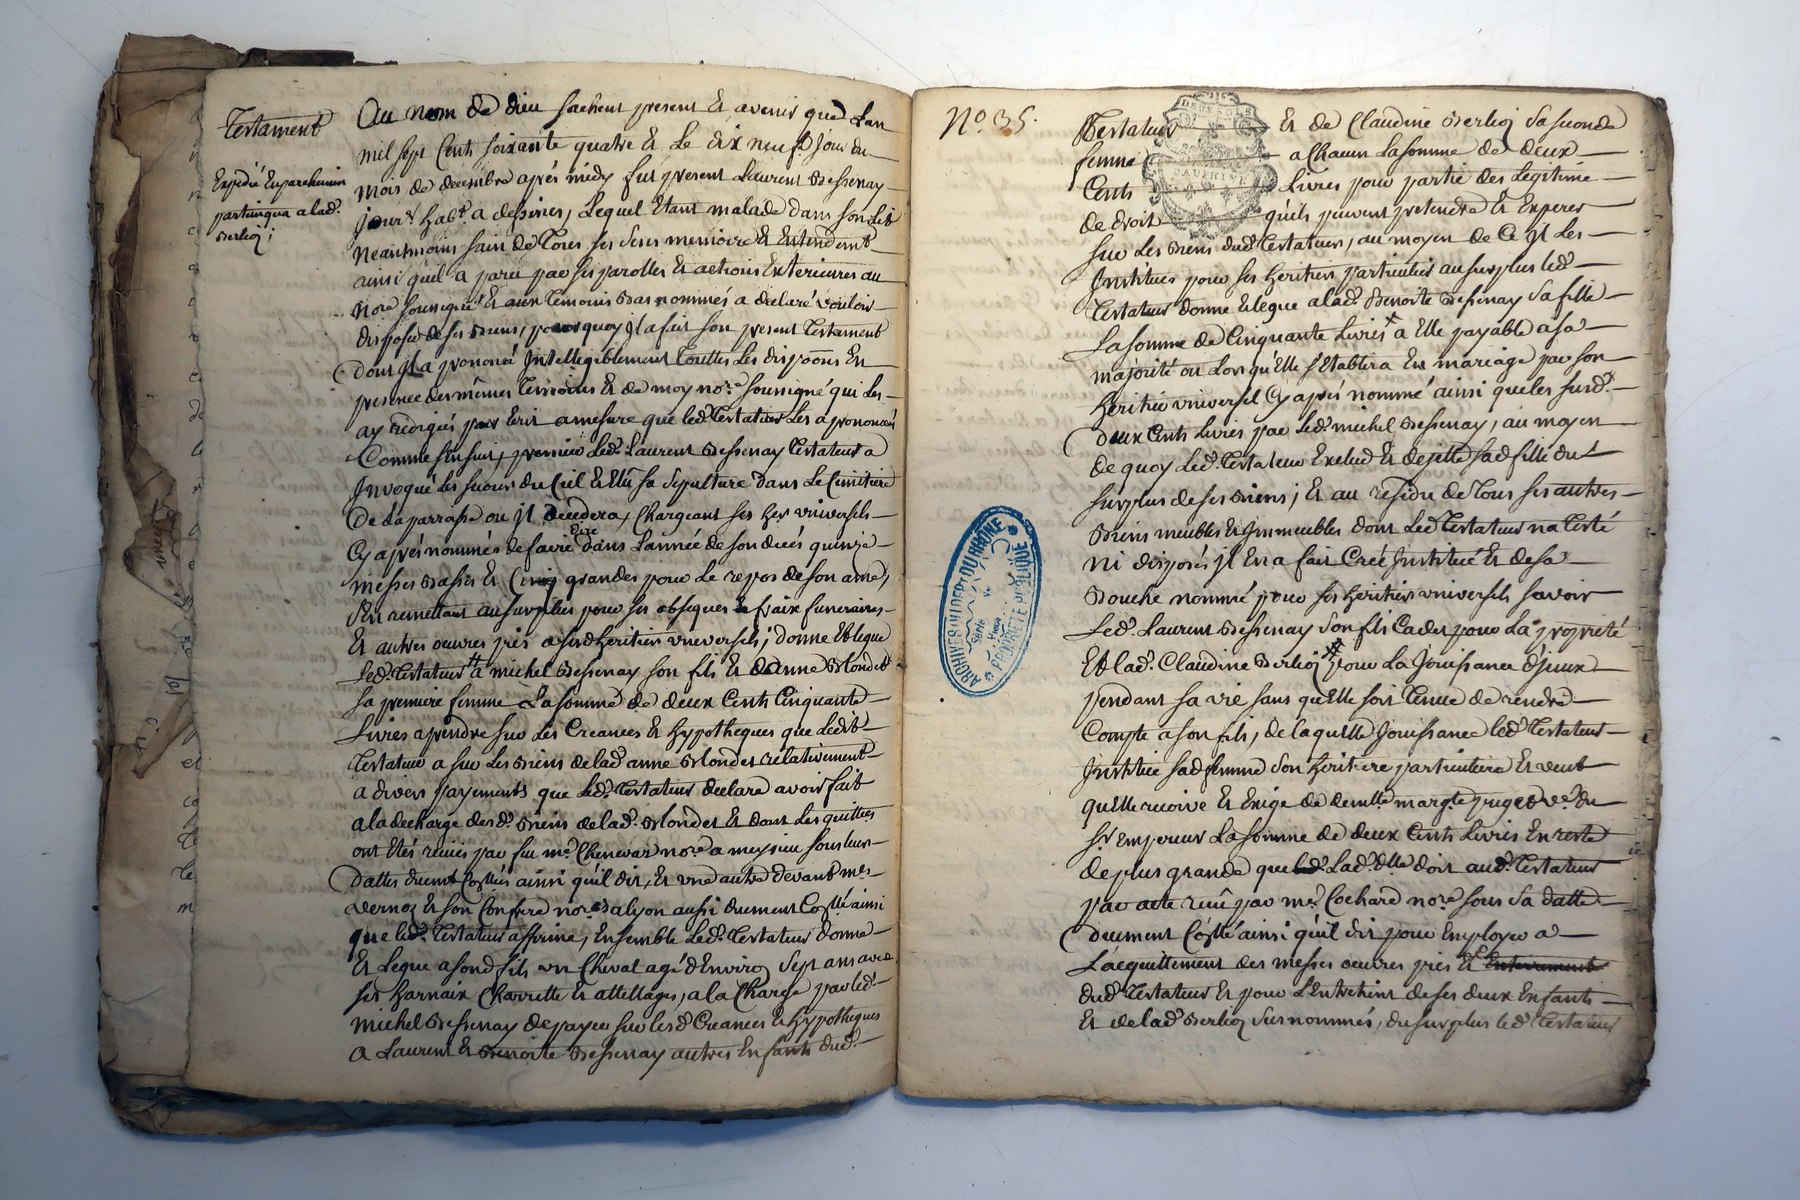 Testament
Expédié En parchemin
partinqua a lad.
Berlioz;
Au nom de Dieu sachent present Et avenir que Lan
mil sept Cents soixante quatre Et Le dix neuf Jour du
mois de decembre après midy fut present Laurent Bessenay
jour.r hab.t a despines, Lequel Etant malade dans son Lit
neantmoins sain de Tous ses sens memoire Et Entendem.t
ainsi quil a paru par ses parolles Et actions Exterieures au
no.re soussigné Et aux Temoins Bas nommés a declaré vouloir
disposer de ses Biens, pourquoy Jl a fait son present Testament
dont Jl a prononcé Jntelligiblement Touttes Les dispo.ons En
presence des mêmes Temoins Et de moy no.re soussigné qui Les
ay redigées par Ecrit amesure que led. Testateur Les a prononcées
Comme s'ensuit, premier Led. Laurent Bessenay Testateur a
Jnvoqué Les secours du Ciel Et Elû sa sepulture dans Le Cimitiere
De La parroisse ou Jl decedera, Chargeant ses her universels
Cy après nommés de faire dire dans L'année de son decès quinze
messes Basses Et Cinq grandes pour Le repos de son ame,
s'En remettant au surplus pour ses obseques Et fraix funeraires
Et autres oeuvres pies a sesd heritiers universels; donne Et legue
Led. Testateur a michel Bessenay son fils Et de anne Blondet
sa premiere femme La somme de deux Cents Cinquante
Livres a prendre sur Les Creances Et hypotheques que Ledit
Testateur a sur Les Biens de lad. anne Blondet relativement
a divers payements que Led. Testateur declare avoir fait
a la decharge des d. Biens de lad. Blondet Et dont Les quittes
ont Etés reçues par feu m.e Chenevar no.re a meysieu sous leurs
dattes duemt Coñllées ainsi quil dit, Et une autre devant m.es
vernoz Et son Confrere no.res a Lyon aussi duement Coñllé ainsi
que led. Testateur affirme, Ensemble Led. Testateur donne
Et Legue a sond fils un Cheval agé d'Environ sept ans avec
ses harnaix Charrette Et attellages, a la Charge par led.
michel Bessenay de payer sur lesd Creances Et hypotheques
a Laurent Et Benoite Bessenay autres Enfants dud.
N.o 35.
Testateur Et de Claudine Berlioz sa seconde
femme a Chacun La somme de deux
Cents Livres pour partie des Legitime
de droit quils peuvent pretendre Et Esperer
sur Les Biens dud. Testateur, au moyen de Ce Jl Les
Jnstitues pour ses heritiers particuliers au surplus led.
Testateur donne Et legue a lad. Benoite Bessenay sa fille
La somme de Cinquante Livres a Elle payable a sa
majorité ou Lorsqu'Elle s'Etablira En mariage par son
heritier universel Cy après nommé ainsi que les susd.
deux Cents Livres par Led. michel Bessenay, au moyen
de quoy Led. Testateur Exclud Et dejette sad fille du
surplus de ses Biens; Et au residu de Tous ses autres
Biens meubles Et Jmmeubles dont Led Testateur na Testé
ni disposés Jl En a fait Créé Jnstitué Et de sa
Bouche nommé pour ses heritiers universels savoir
Led. Laurent Bessenay son fils Cadet pour La proprieté
Et lad. Claudine Berlioz pour La Jouissance d'jceux
pendant sa vie sans quElle soit Tenue de rendre
Compte a son fils, de laquelle Jouissance led. Testateur
Jnstitue sad femme son heritiere particuliere Et veut
quElle recoive Et Exige de demlle marg.te puget ve. du
S.r Empereur La somme de deux Cents Livres En reste
de plus grande que Lad. dlle doit aud. Testateur
par acte reçu par m.e Cochard no.re sous sa datte
duement Coñllé ainsi quil dit pour Employer a
L'acquittement des messes oeuvres pies Et
dud. Testateur Et pour L'Entretient de ses deux Enfants
Et de lad Berlioz susnommés, du surplus led. Testateur
DAUPHINE
ARCHIVES DU DEPT DU RHONE
PROPRIETE PUBLIQUE